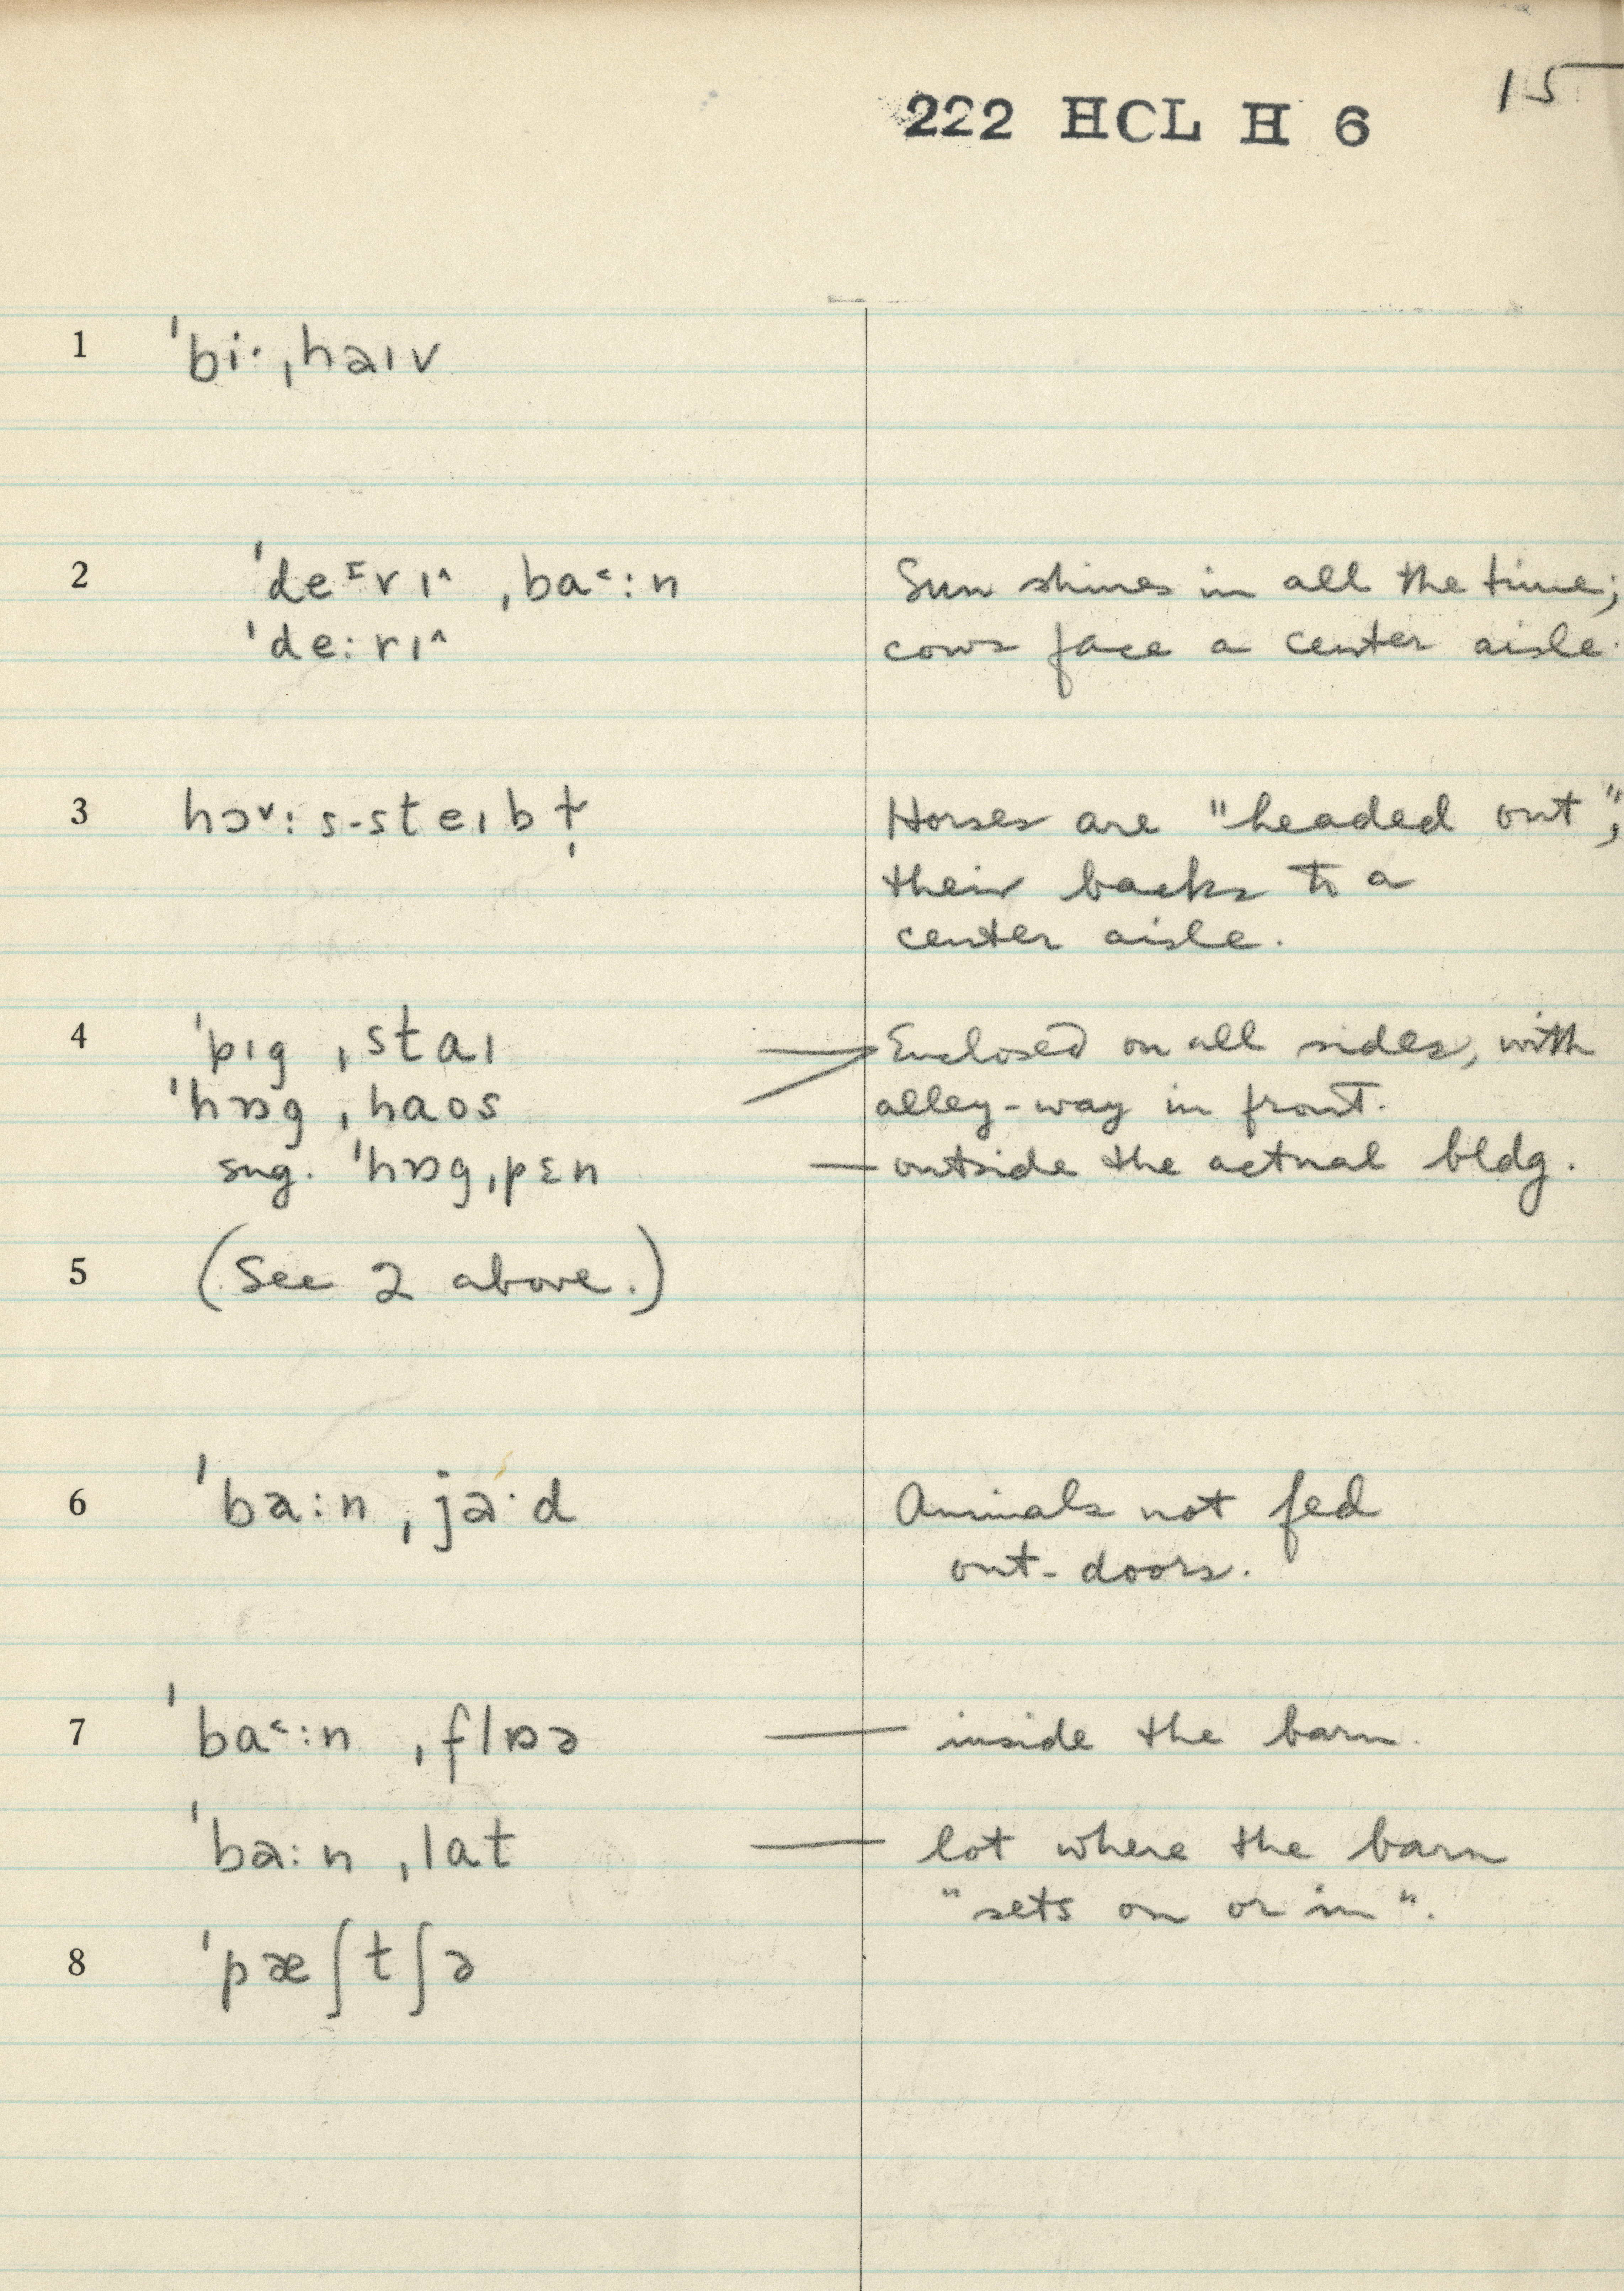 15
222 HCL H 6
1 ˈbi·ˌhaɪv
2 ˈdeᶦrɪ^ ˌba˂:n Sun shines in all the time;
ˈde:rɪ^ cows face a center aisle.
3 hɔ˅:s-steɪbɫ̩ Horses are "headed out";
their backs to a
center aisle.
4 ˈpɪg ˌstaɪ Enclosed on all sides, with
ˈhɒg ˌhaos alley-way in front.
sug. ˈhɒgˌpɛn — outside the actual bldg.
5 (See 2 above.)
6 ˈba:n ˌja·d Animals not fed
out-doors.
7 ˈba˂:n ˌflɒə — inside the barn.
ˈba:n ˌlat — lot where the barn
"sets on or in".
8 ˈpæʃtʃə